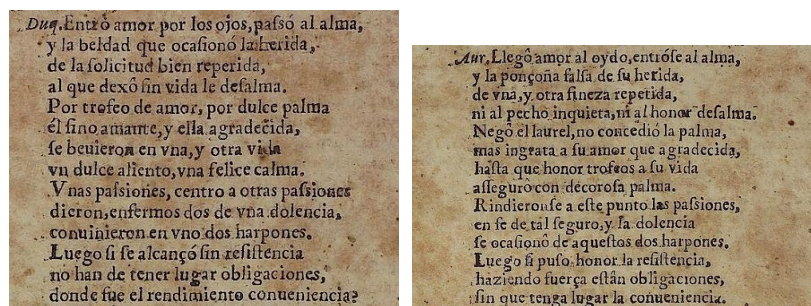 Duq. Entrò amor por los ojos, passó al alma,
y la beldad que ocasionó la herida,
de la solicitud bien reperida,
al que dexô sin vida le desalma.
Por trofeo de amor, por dulce palma
él fino amante, y ella agradecida,
se beuieron en vna, y otra vida
vn dulce aliento, vna felice calma.
Vnas passiones, centro a otras passiones
dieron, enfermos dos de vna dolencia,
conuinieron en vno dos harpones.
Luego si se alcançó sin resistencia
no han de tener lugar obligaciones,
donde fue el rendimiento conueniencia?
Aur. Llegô amor al oydo, entróse al alma,
y la ponçoña falsa de su herida,
de vna, y otra fineza repetida,
ni al pecho inquieta, ni al honor desalma.
Negô el laurel, no concedió la palma,
mas ingrata a su amor que agradecida,
hasta que honor trofeos a su vida
assegurò con decorosa palma.
Rindieronse a este punto las passiones,
en fe de tal seguro, y la dolencia
se ocasionô de aquestos dos harpones.
Luego si puso honor la resistencia,
haziendo fuerça estân obligaciones,
sin que tenga lugar la conueniencia.